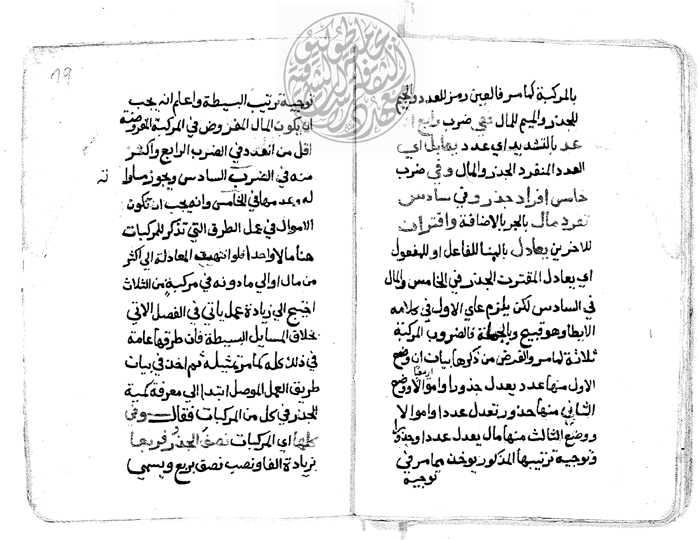 بالمركبة كما مر فالعين رمز للعدد والجيم
للجذر والميم للمال ففي ضرب رابع
عد بالتشديد اي عدد يقابل اي
العدد المنفرد الجذر والمال وفي ضرب
خامس افراد جذر وفي سادس
تفرد مال بالجر بالاضافة واقتران
للاخرين يعادل بالبنا للفاعل او للمفعول
اي يعادل المقترن الجذر في الخامس والمال
في السادس لكن يلزم علي الاول في كلامه
الايطا وهو قبيح وبالجملة فالضروب المركبة
ثلاثة كما مر والغرض من ذكرها بيان ان وضع
الاول منها عدد يعدل جذورا واموالا ووضع
الثاني منها جذور تعدل عددا واموالا
ووضع الثالث منها مال يعدل عددا وجذورا
وتوجيه ترتيبها المذكور يوخذ مما مر في
توجيه
19
توجيه ترتيب البسيطة واعلم انه يجب
ان يكون المال المفروض في المركبة المفروضة
اقل من العدد في الضرب الرابع واكثر
منه في الضرب السادس ويجوز مساوا
ته
له وعدمها في الخامس وانه يجب ان تكون
الاموال في عمل الطرق التي تذكر للمركبات
هنا مالا واحدا فلو انتهيت المعادلة الي اكثر
من مال او الي ما دونه في مركبة من الثلاث
احتيج الي زيادة عمل ياتي في الفصل الاتي
بخلاف المسايل البسيطة فان طرقها عامة
في ذلك كله كما مر تمثيله ثم اخذ في بيان
طريق العمل الموصل ابتدا الي معرفة كمية
الجذر في كل من المركبات فقال وفي
كلها اي المركبات نصف الجذر فربعا
بزيادة الفا ونصب نصف بربع ويسمي